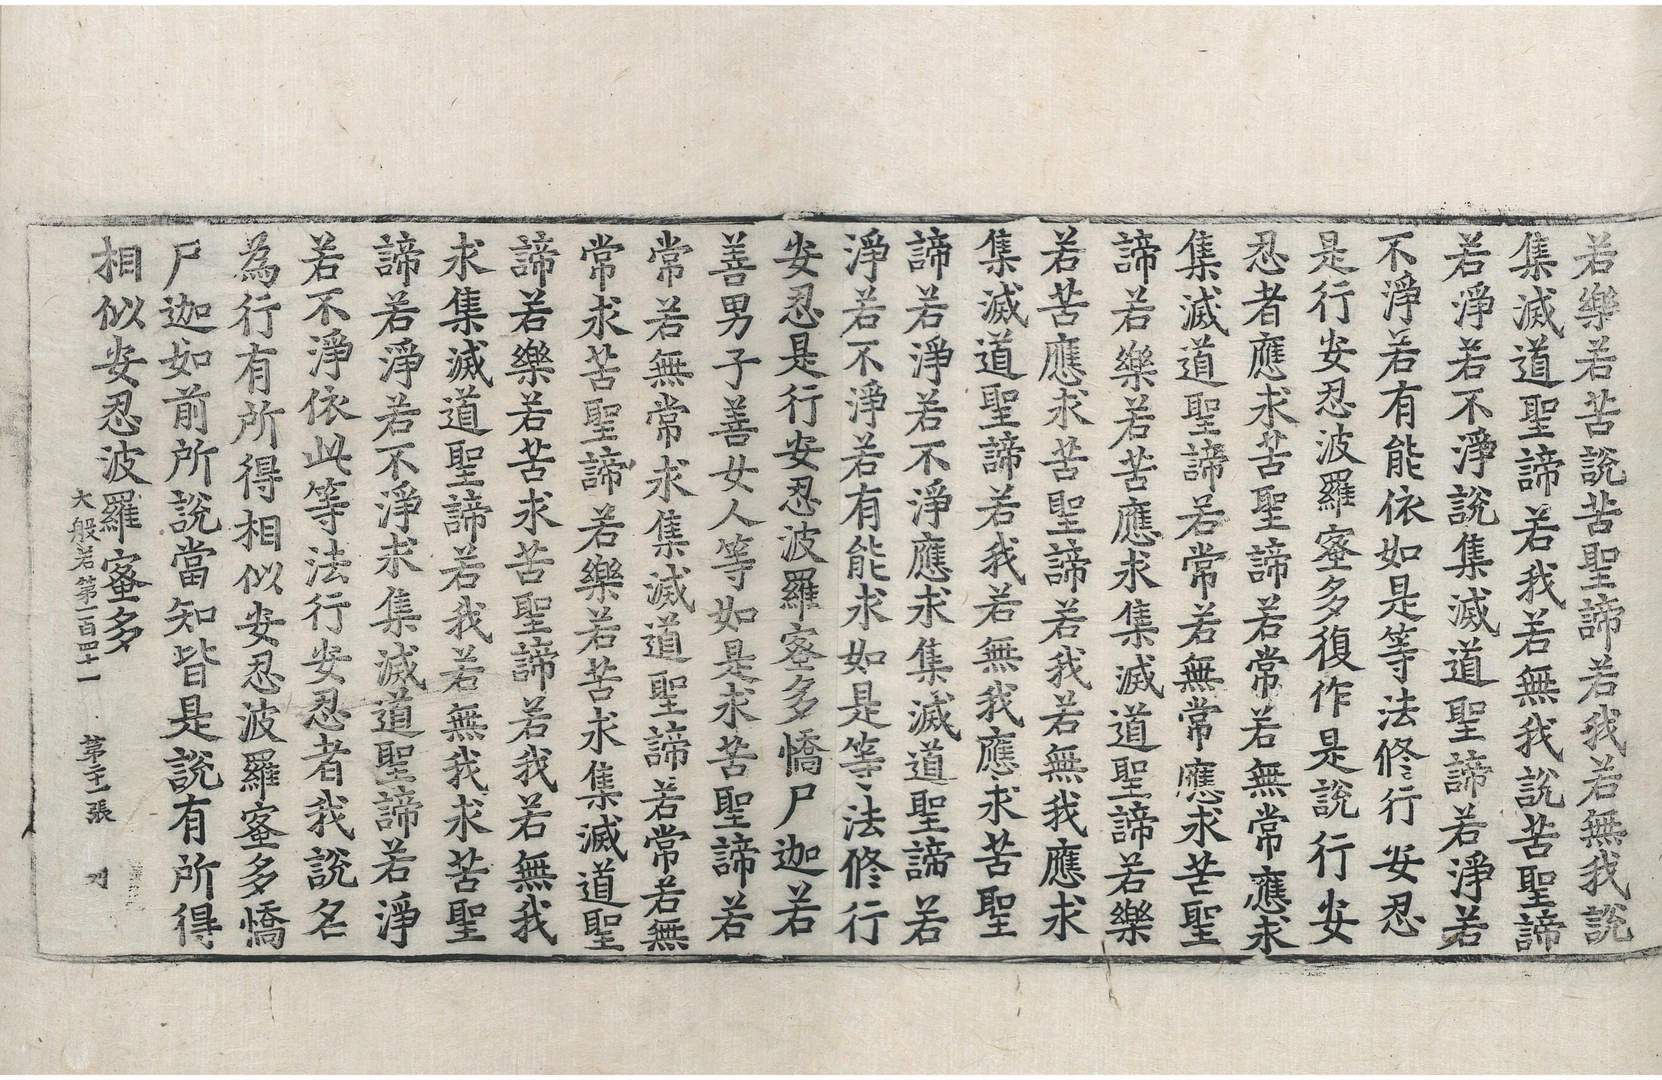 若樂若苦說苦聖諦若我若無我說
集滅道聖諦若我若無我說苦聖諦
若淨若不淨說集滅道聖諦若淨若
不淨若有能依如是等法修行安忍
是行安忍波羅蜜多復作是說行安
忍者應求苦聖諦若常若無常應求
集滅道聖諦若常若無常應求苦聖
諦若樂若苦應求集滅道聖諦若樂
若苦應求苦聖諦若我若無我應求
集滅道聖諦若我若無我應求苦聖
諦若淨若不淨應求集滅道聖諦若
淨若不淨若有能求如是等法修行
安忍是行安忍波羅蜜多憍尸迦若
善男子善女人等如是求苦聖諦若
常若無常求集滅道聖諦若常若無
常求苦聖諦若樂若苦求集滅道聖
諦若樂若苦求苦聖諦若我若無我
求集滅道聖諦若我若無我求苦聖
諦若淨若不淨求集滅道聖諦若淨
若不淨依此等法行安忍者我說名
為行有所得相似安忍波羅蜜多憍
尸迦如前所說當知皆是說有所得
相似安忍波羅蜜多
大般若第一百四十一 第二十一張